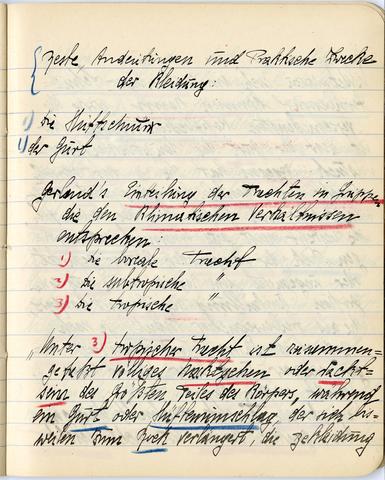 Erste Andeutungen und Praktische Zwecke
der Kleidung:
1) die Hüftschnur
1) der Gurt
Gerland's Einteilung der Trachten in Gruppen
die den Klimatischen Verhältnissen
entsprechen:
1) die boreale Tracht
2) die subtropische "
3) die tropische "
„Unter 3) tropischer Tracht ist zusammen-
gefaßt völliges Nacktgehen oder Nackt-
sein des größten Teiles des Körpers, während
ein Gurt oder Hüftenumschlag, der sich bis-
weilen zum Rock verlängert, die Bekleidung